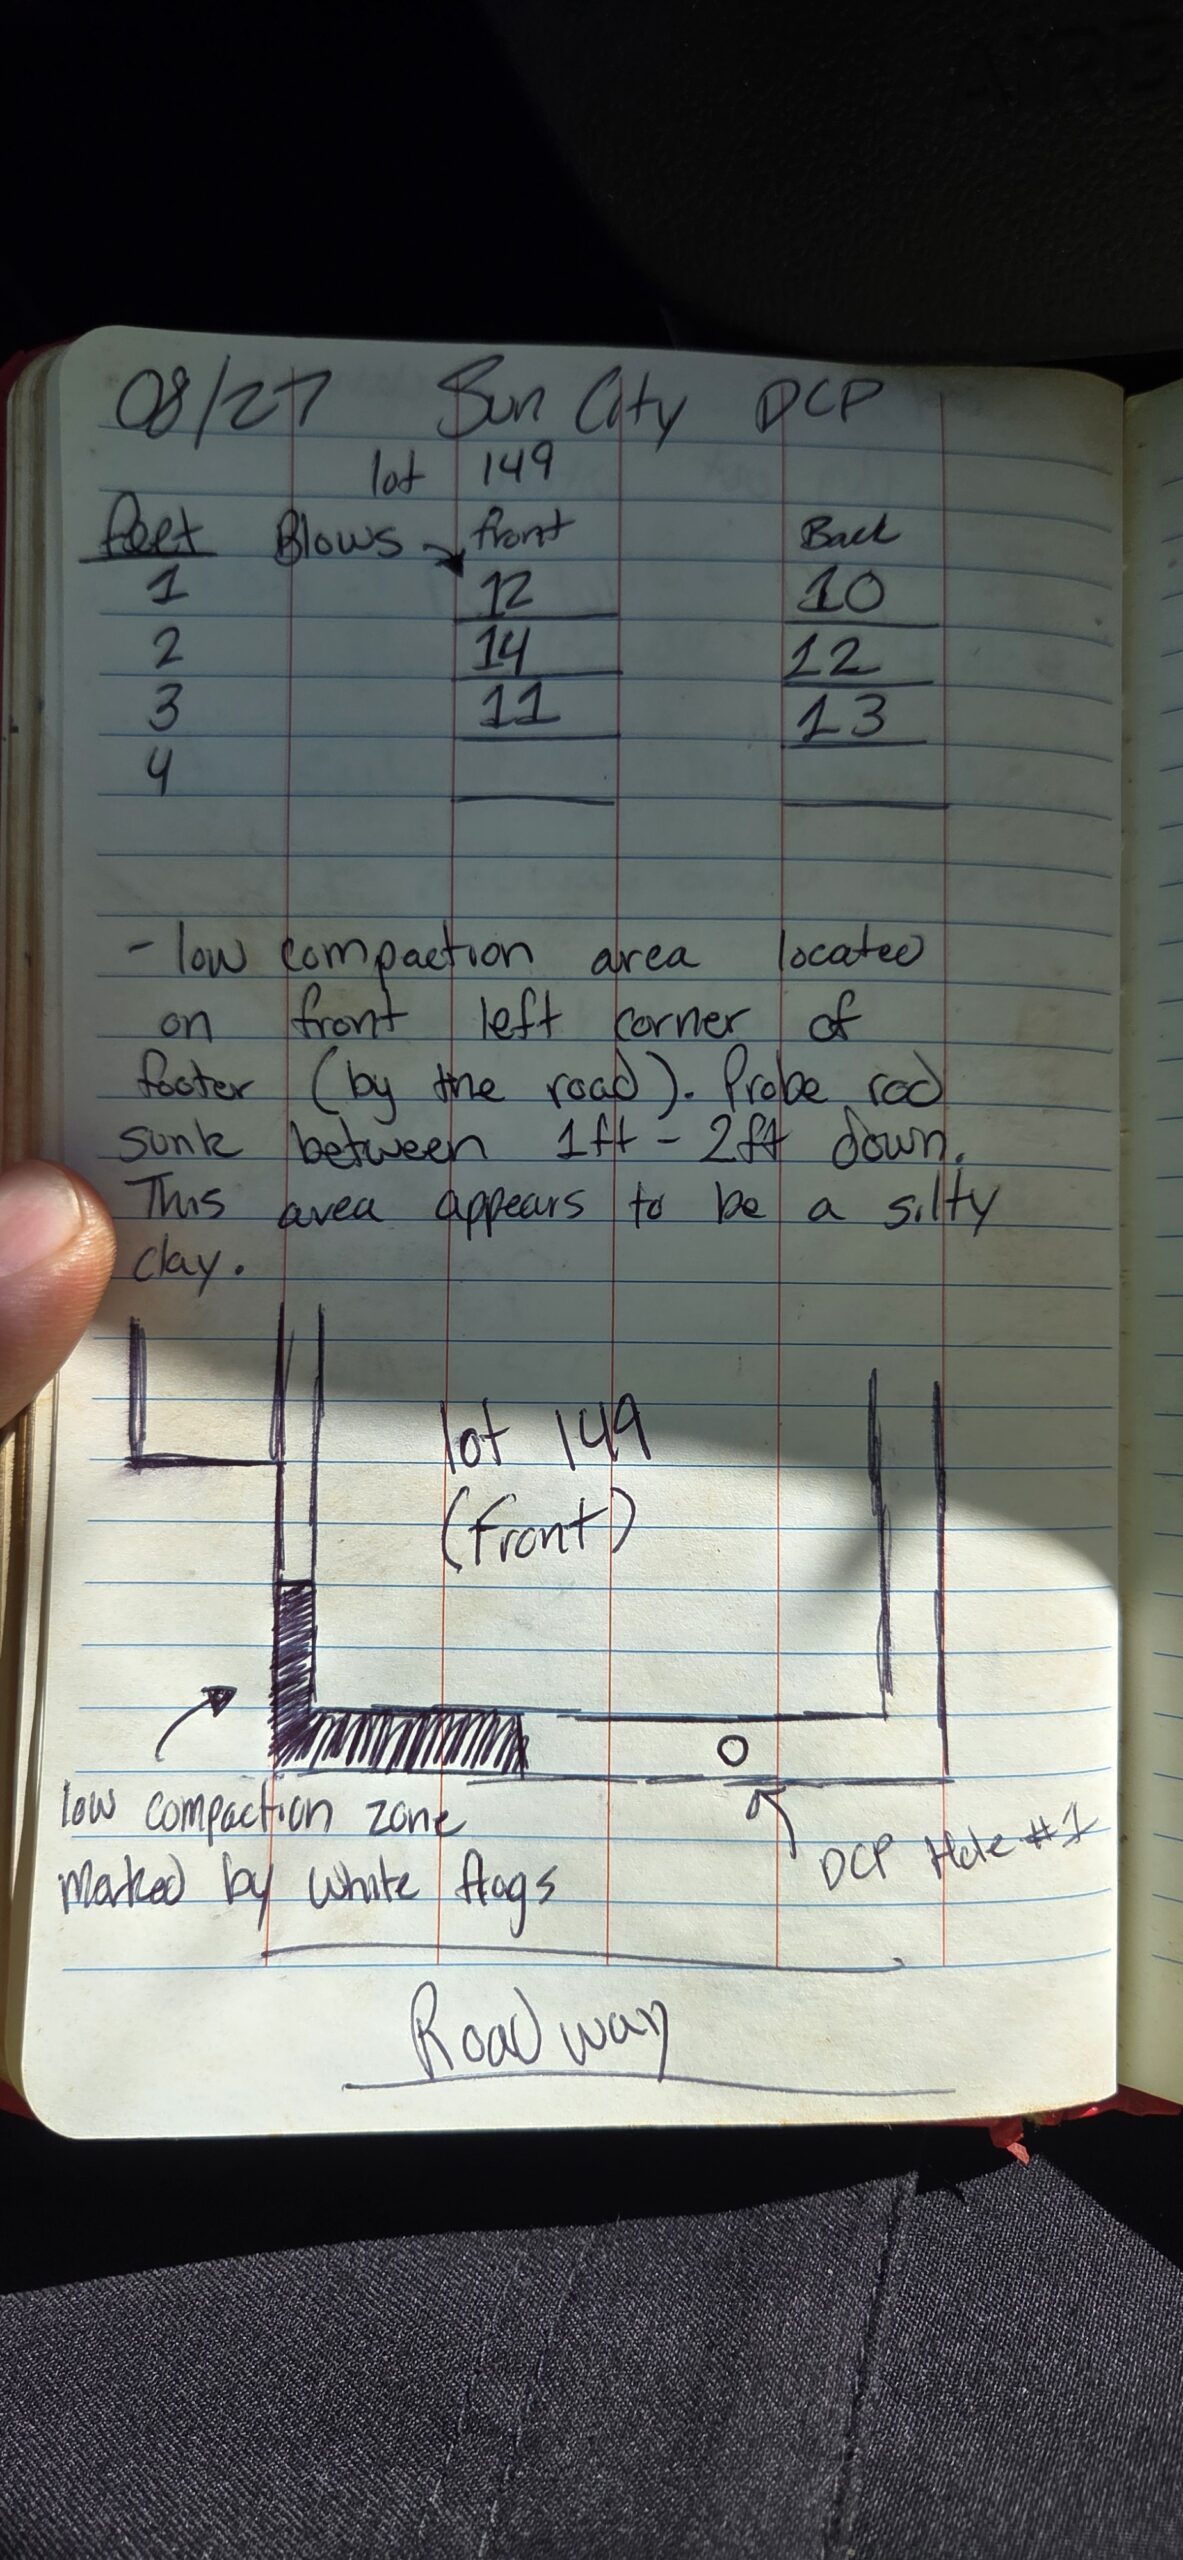 08/27 Sun City DCP
lot 149
feet Blows front Back
1 12 10
2 14 12
3 11 13
4
- low compaction area located
on front left corner of
footer (by the road). Probe rod
sunk between 1ft - 2ft down.
This area appears to be a silty
clay.
lot 149
(front)
low compaction zone
marked by white flags
DCP Hole #1
Road way